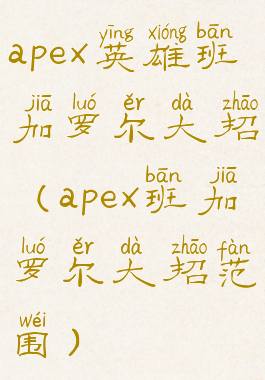 yīng xióng bān
apex英雄班
jiā luó ěr dà zhāo
加罗尔大招
bān jiā
（apex班加
luó ěr dà zhāo fàn
罗尔大招范
wéi
围）